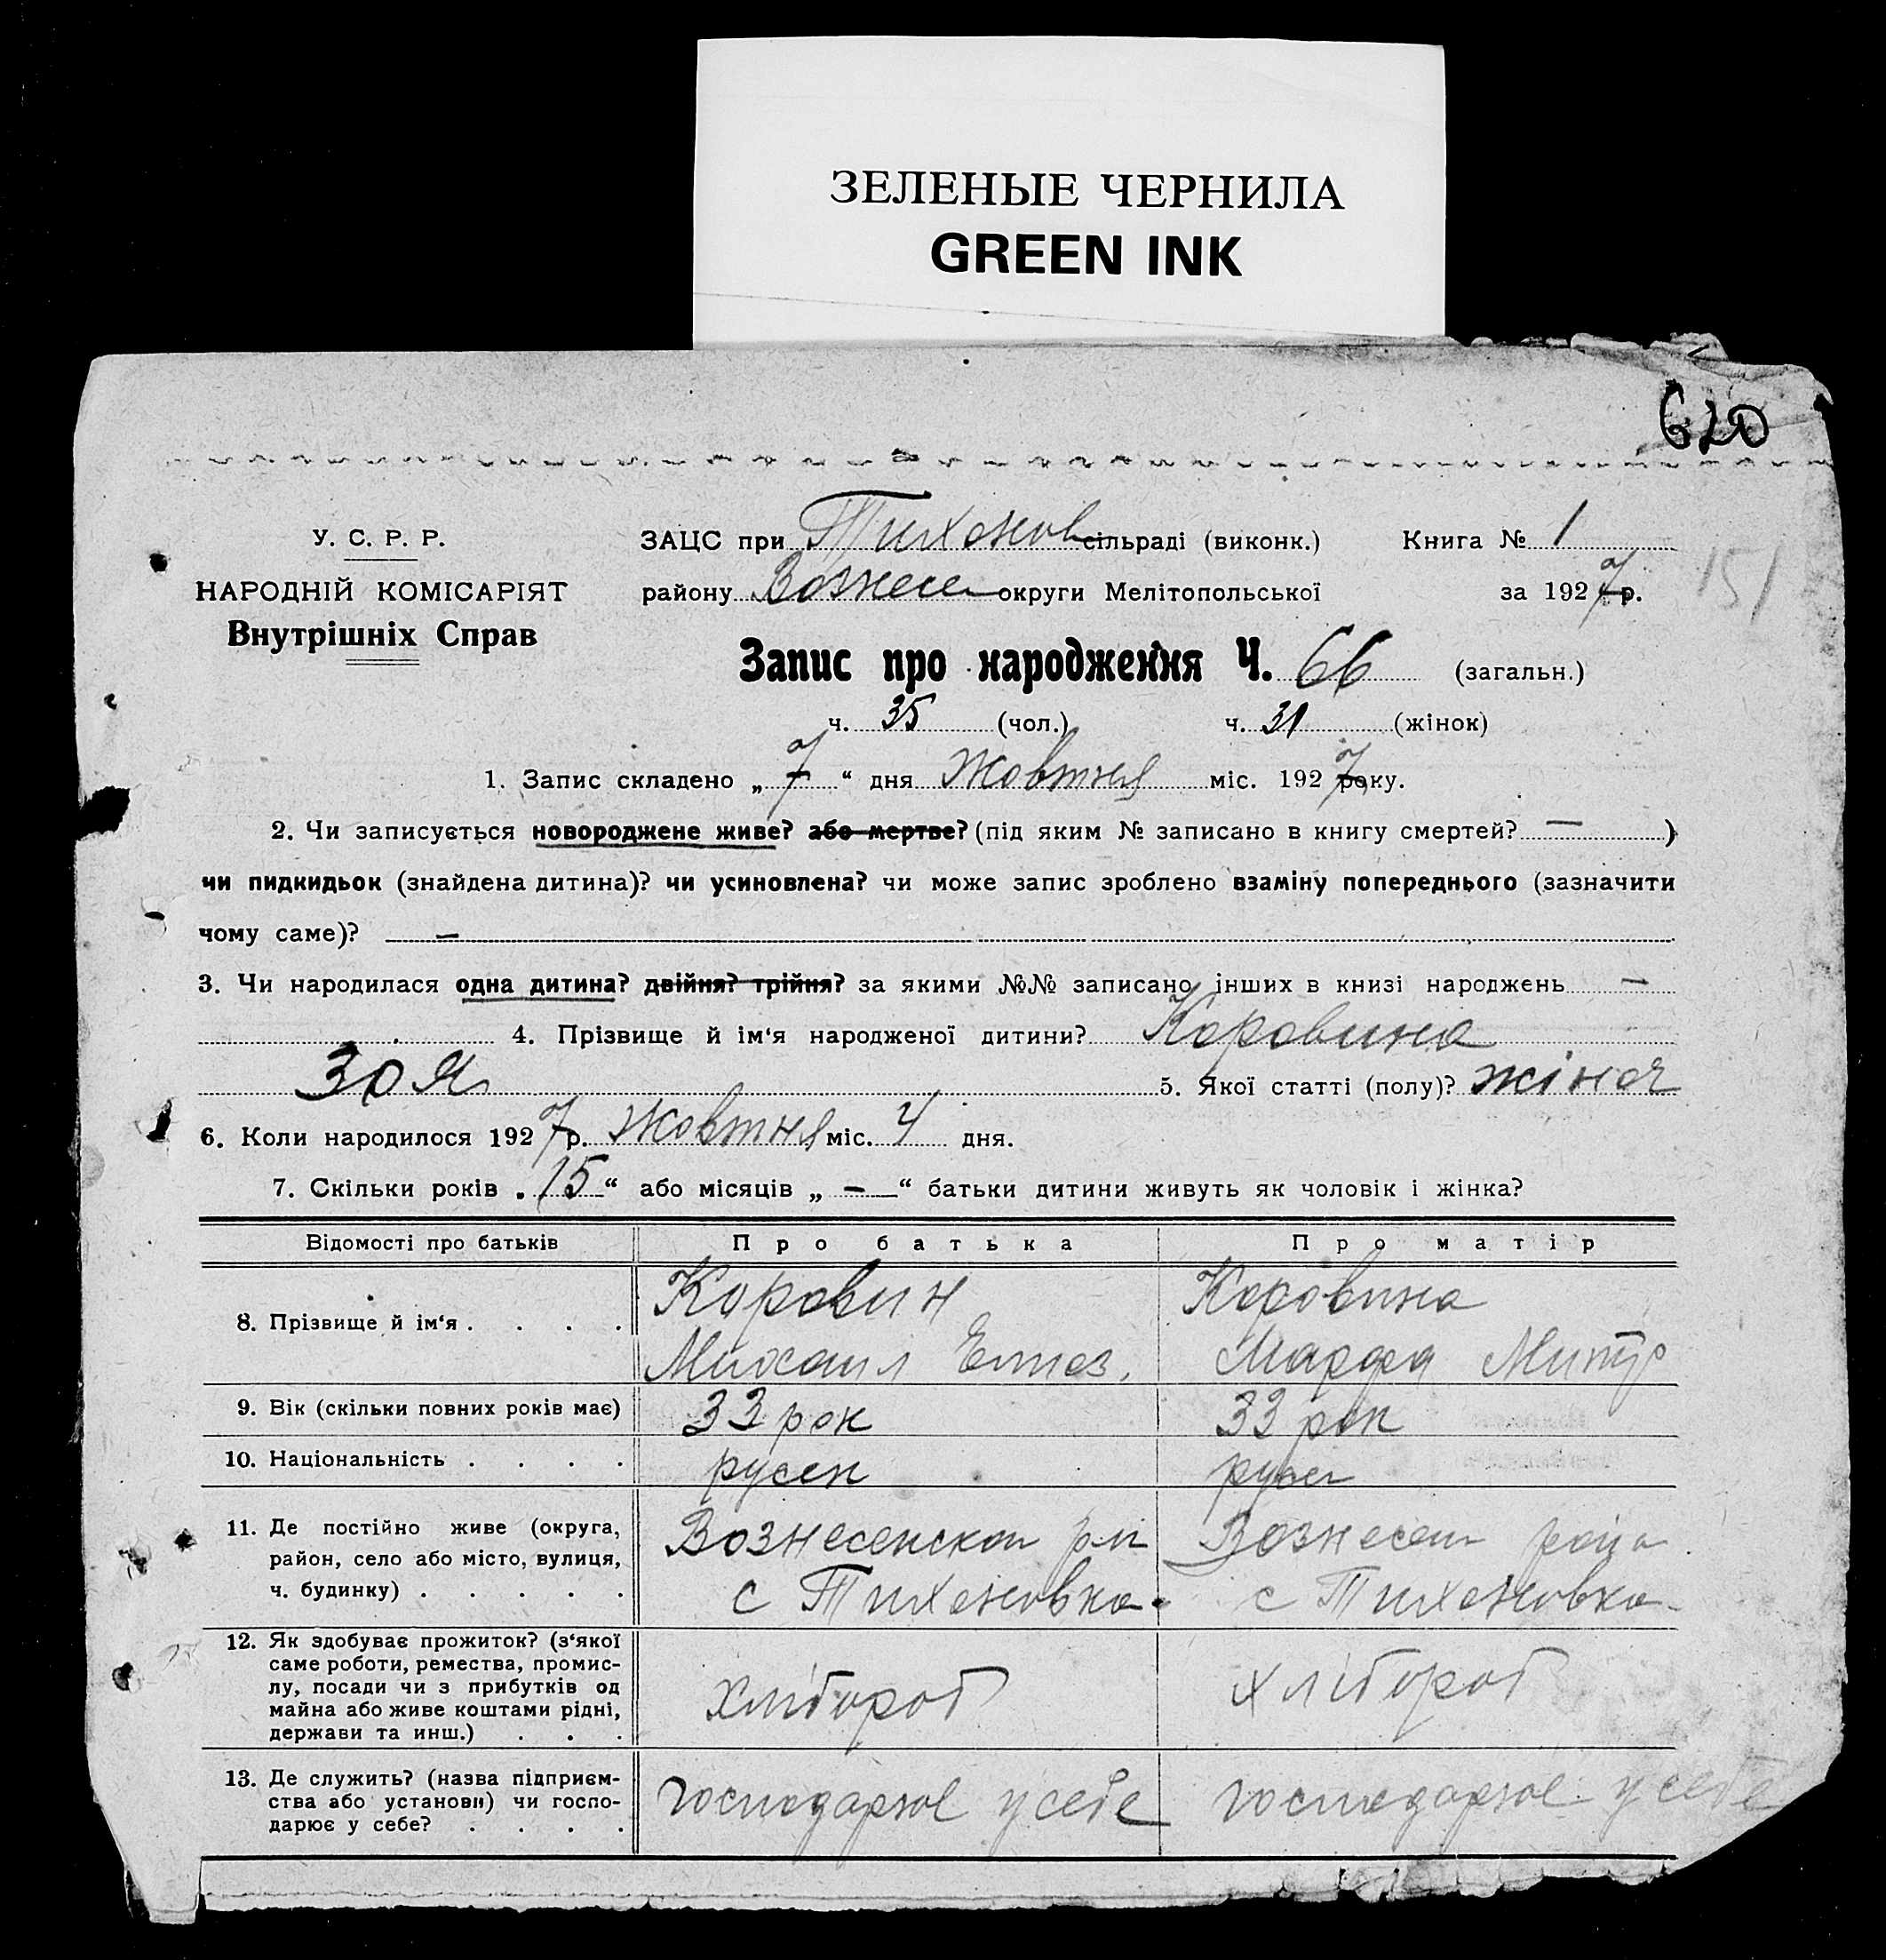 ЗЕЛЕНЫЕ ЧЕРНИЛА
GREEN INK
620
У. С. Р. Р.
НАРОДНІЙ КОМІСАРІЯТ
Внутрішніх Справ
ЗАЦС при Тихонов сільраді (виконк.) Книга № 1
району Вознесен округи Мелітопольської за 1927 р.
151
Запис про народження Ч. 66 (загальн.)
ч. 35 (чол.) ч. 31 (жінок)
1. Запис складено „ 7 “ дня Жовтня міс. 1927 року.
2. Чи записується новороджене живе? або мертве? (під яким № записано в книгу смертей? — )
чи пидкидьок (знайдена дитина)? чи усиновлена? чи може запис зроблено взаміну попереднього (зазначити
чому саме)? —
3. Чи народилася одна дитина? двійня? трійня? за якими №№ записано інших в книзі народжень —
4. Прізвище й ім‘я народженої дитини? Коровина
Зоя 5. Якої статті (полу)? жіноч
6. Коли народилося 1927 р. Жовтня міс. 4 дня.
7. Скільки років „ 15 “ або місяців „ — “ батьки дитини живуть як чоловік і жінка?
Відомості про батьків Про батька Про матір
8. Прізвище й ім‘я . . . . Коровин Коровина
Михаил Марфа Митр
9. Вік (скільки повних років має) 33 рок 33 рок
10. Національність . . . . русск русск
11. Де постійно живе (округа,
район, село або місто, вулиця,
ч. будинку) . . . . .
Вознесенскои рн Вознесен район
с Тихоновка с Тихоновка
12. Як здобуває прожиток? (з‘якої
саме роботи, ремества, промис-
лу, посади чи з прибутків од
майна або живе коштами рідні,
держави та инш.) . . .
хлібороб хлібороб
13. Де служить? (назва підприєм-
ства або установи) чи госпо-
дарює у себе? . . . .
господарює у себе господарює у себе